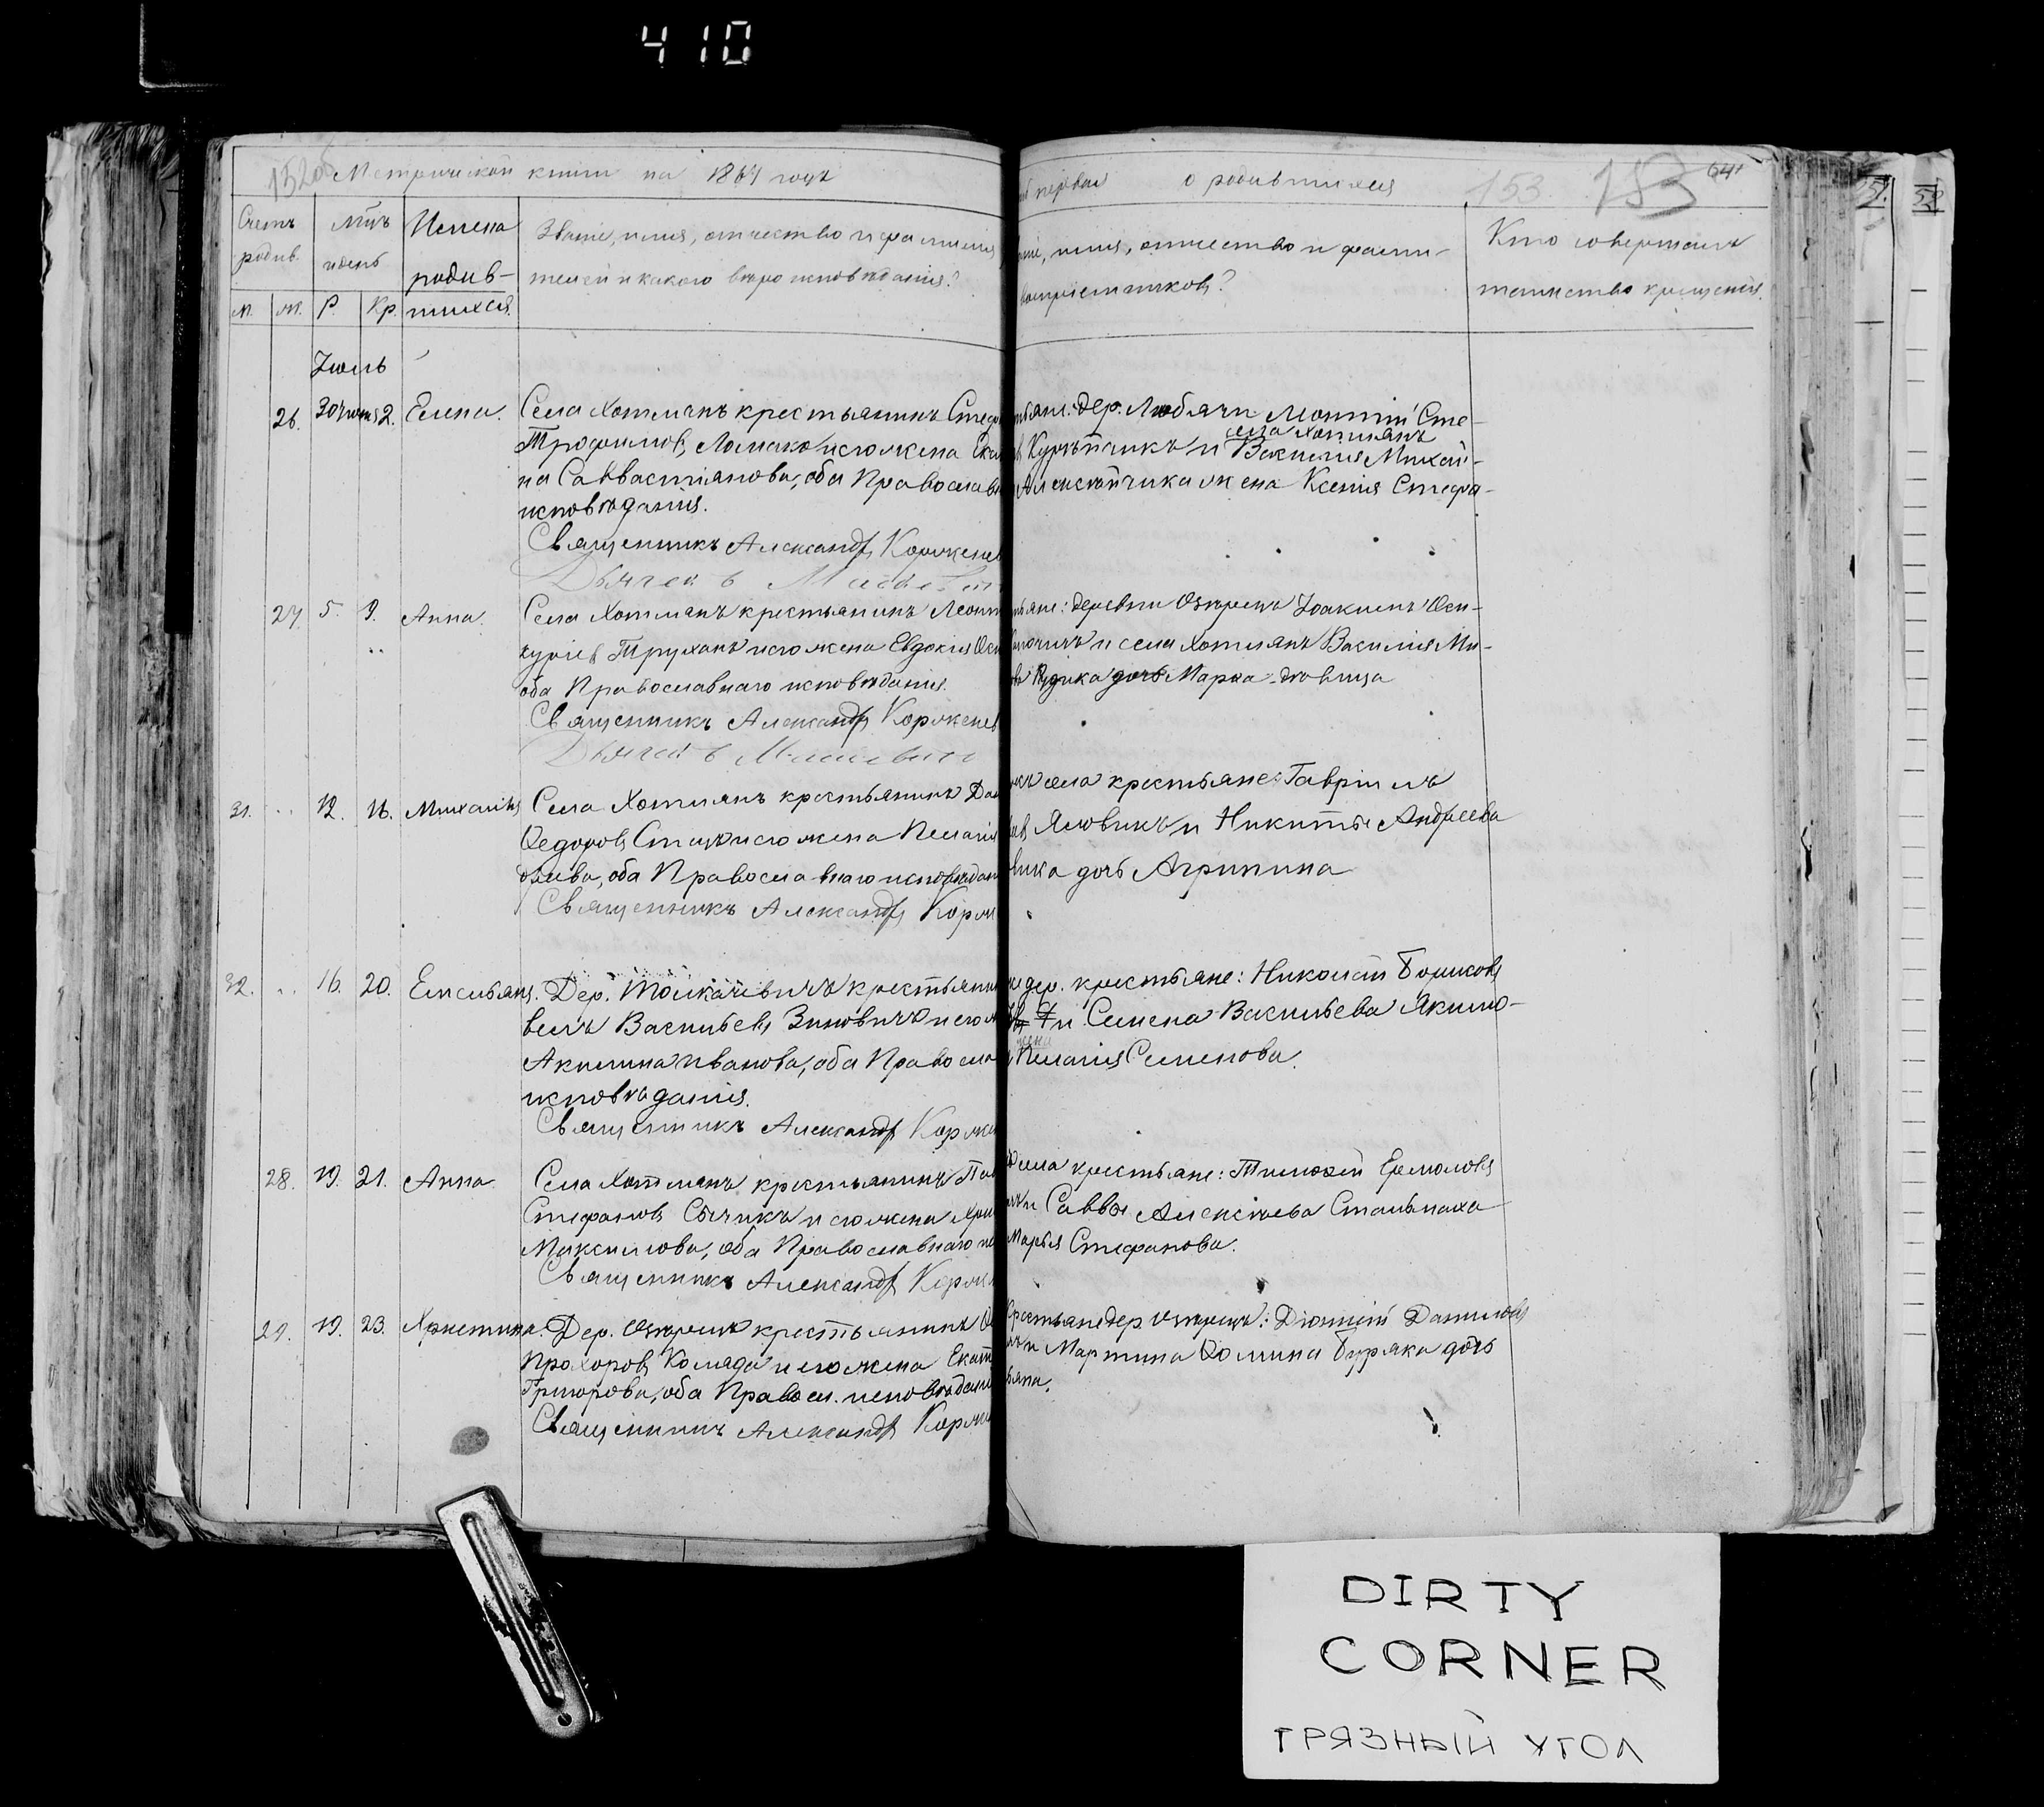 410
Метрической книги на 1867 годъ
Счетъ родив.
Мцъ и день
Имена родив-
шихся.
Званіе, имя, отчество и фамилія
телей и какого вѣроисповѣданія?
м. ж. Р. Кр.
Іюль
26. 30 Іюня 2. Елена.
Села Хотлянъ крестьянинъ Стеф
Трофимовъ Ломако и его жена Ека
на Савастіянова, оба Православ
исповѣданія.
Священникъ Александръ Корженев
Дьячекъ
27. 5. 9. Анна.
Села Хотлянъ крестьянинъ Леонт
Труханъ и его жена Евдокія Оси
оба Православнаго исповѣданія.
Священникъ Александръ Корженев
Дьячекъ
31. .. 12. 16. Михаилъ
Села Хотлянъ крестьянинъ Да
Федоровъ и его жена Пелагія
оба Православнаго исповѣдан
Священникъ Александръ Корж
32. .. 16. 20. Емельянъ.
Дер. Толкачевичъ крестьянин
велъ Васильевъ Зиновичъ и его ж
Акилина Иванова, оба Правосла
исповѣданія.
Священникъ Александръ Корже
28. 19. 21. Анна
Села Хотлянъ крестьянинъ Пав
Стефановъ Сычикъ и его жена Хри
Максимова, оба Православнаго ис
Священникъ Александръ Корже
29. 19. 23. Христина.
Дер. Озерецъ крестьянинъ
Прохоровъ Коляда и его жена Екат
Григорова, оба Правосл. исповѣдані
Священникъ Александръ Корже
первая о родившихся
153. 183 64
ніе, имя, отчество и фами-
воспріемниковъ?
Кто совершалъ
таинство крещенія.
тьяне: дер. Любачи Леонтій Сте-
села Хотлянъ
Курьянчикъ и Василія Михай-
Алексейчика жена Ксенія Стефа-
тьяне: деревни Озерецъ Іоакимъ Оси-
и села Хотлянъ Василія Ми-
Рудика дочь Марѳа дѣвица
села крестьяне: Гавріилъ
Яловикъ и Никиты Андреева
вика дочь Агрипина
дер. крестьяне: Николай
и Семена Васильева Якимо-
жена
Пелагія Семенова.
села крестьяне: Тимоѳей Ермоловъ
и Саввы Алексѣева Стальмаха
Марья Стефанова.
Крестьяне дер. Озерецъ: Діонисій Даниловъ
и Мартина Ѳомина Буряка дочь
ьяна.
DIRTY
CORNER
ГРЯЗНЫЙ УГОЛ